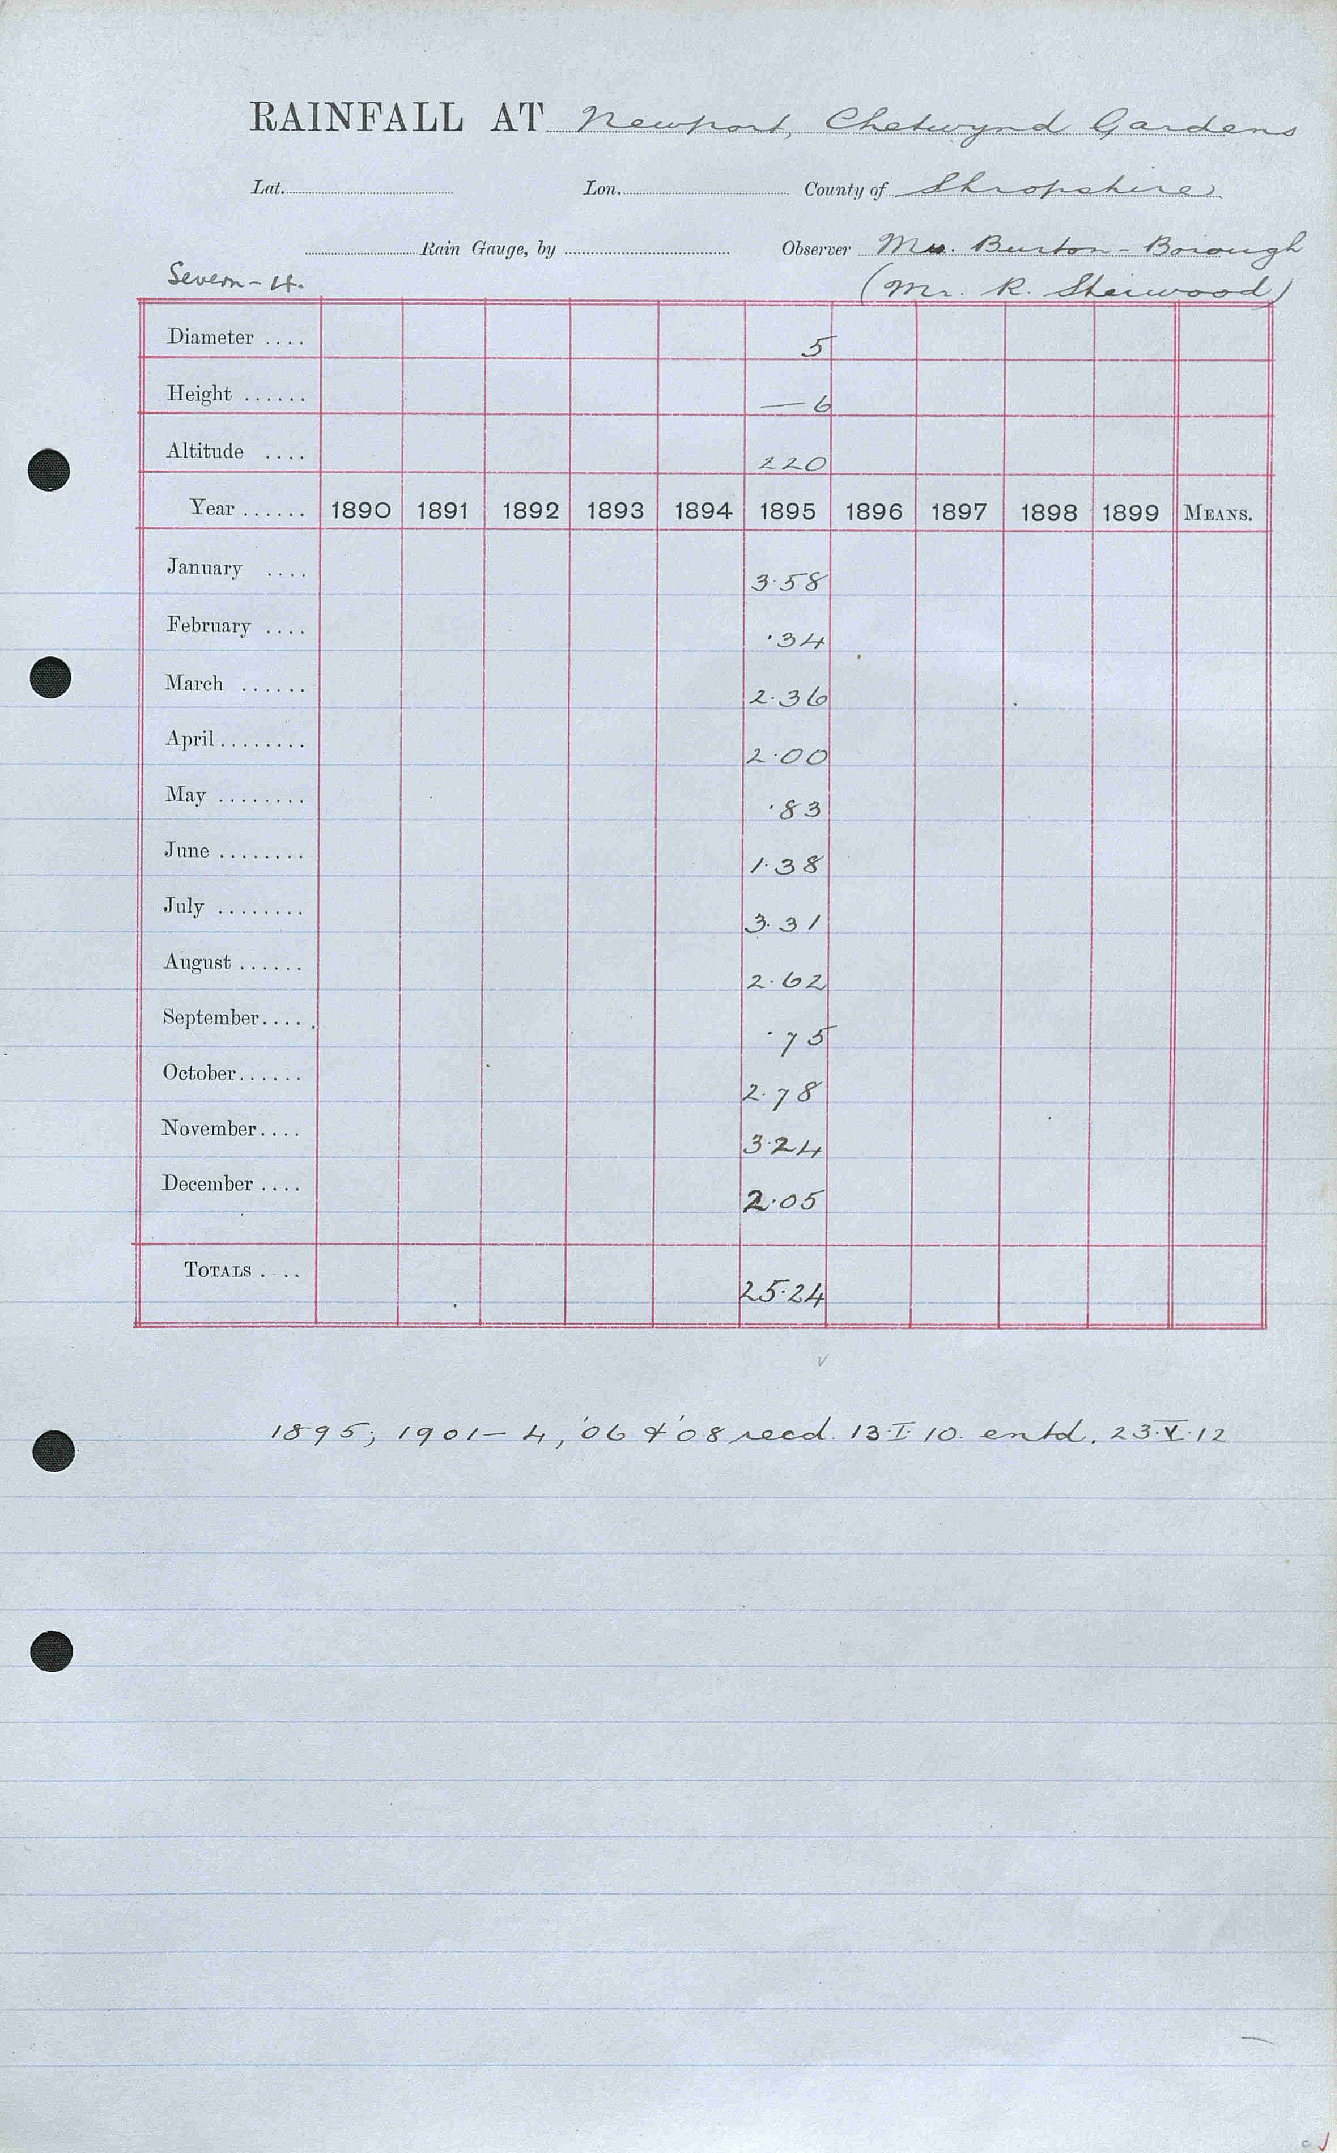 RAINFALL AT Newport, Chetwynd Gardens
Lat. Lon. County of Shropshire
Rain Gauge, by Observer Mrs. Burton-Borough
Severn-4. (Mr. R. Sherwood)
Diameter .... 5
Height ...... —6
Altitude .... 220
Year ...... 1890 1891 1892 1893 1894 1895 1896 1897 1898 1899 MEANS.
January .... 3.58
February .... .34
March ...... 2.36
April ........ 2.00
May ........ .83
June ........ 1.38
July ........ 3.31
August ...... 2.62
September..... .75
October...... 2.78
November.... 3.24
December .... 2.05
TOTALS .... 25.24
1895; 1901-4, '06 & '08 recd. 13.I.10. entd. 23.V.12